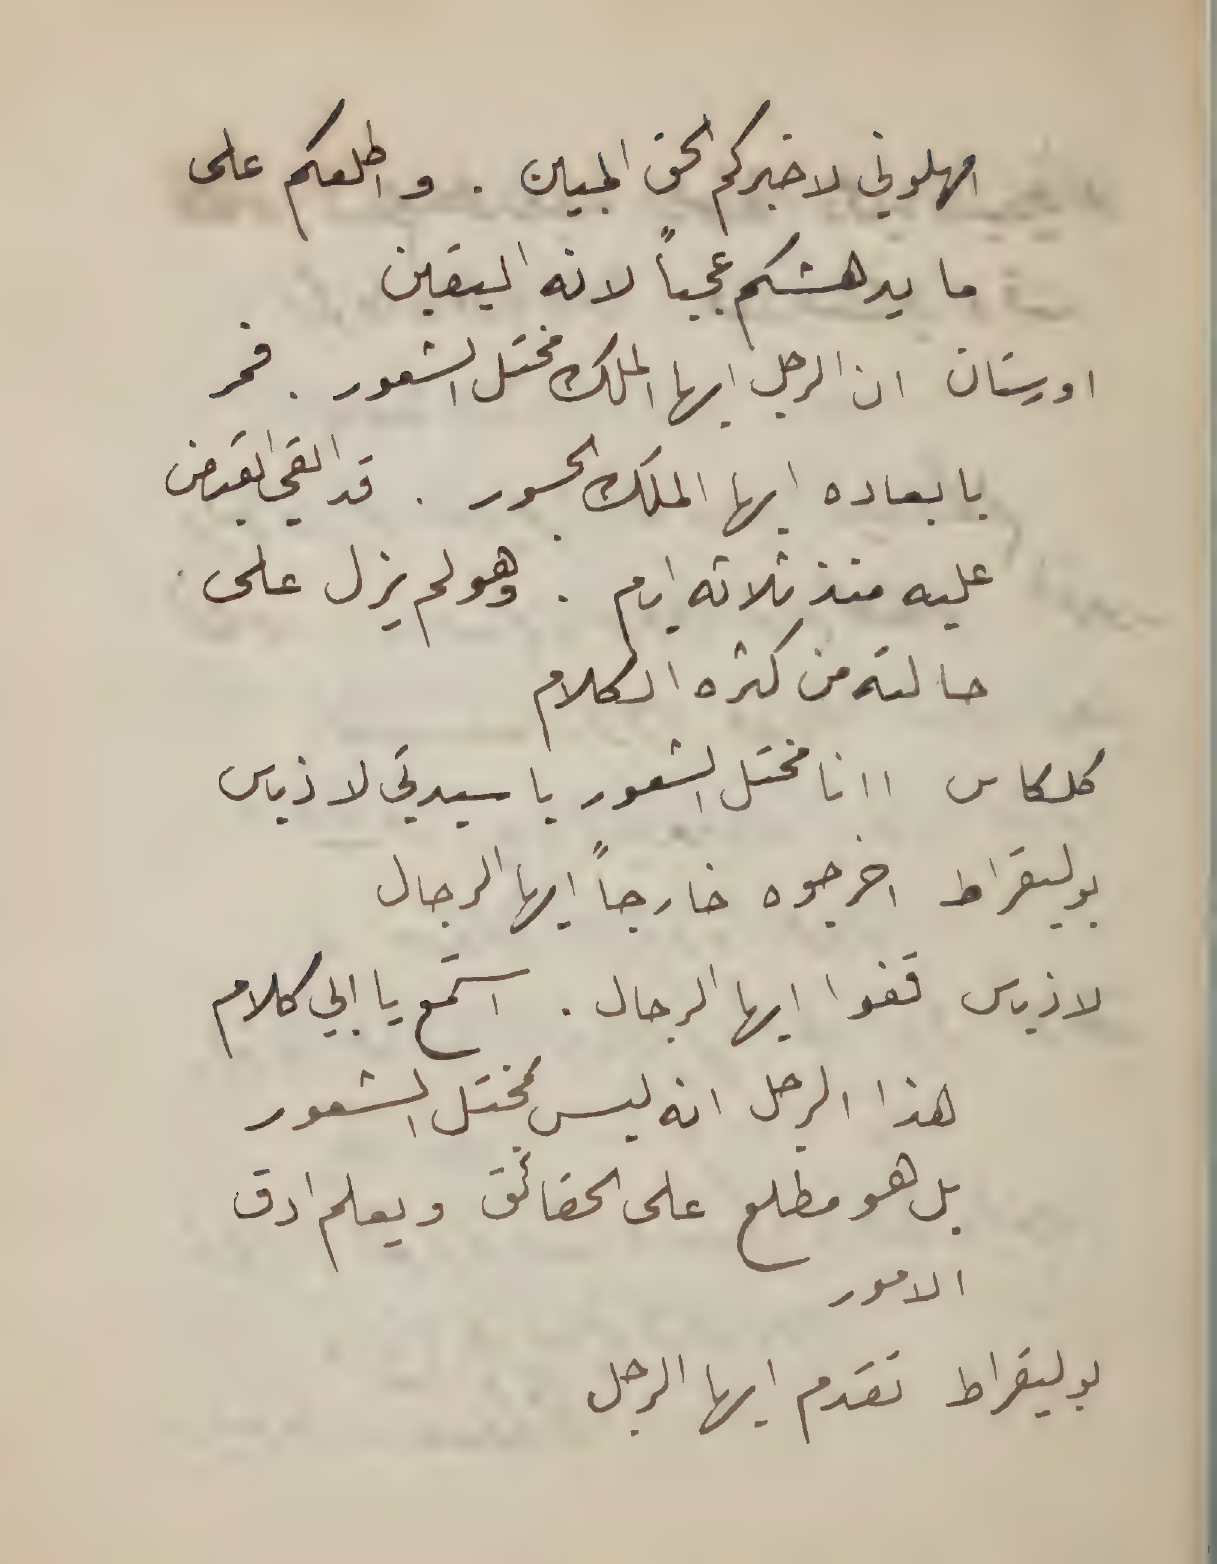 امهلوني لاخبركم الحق المبين . واطلعكم على
ما يدهشكم عجباً لانه اليقين
اورستان ان الرجل ايها الملك مختل الشعور . فمر
بابعاده ايها الملك الجسور . قد القي القبض
عليه منذ ثلاثه ايام . وهو لم يزل على
حالته من كثره الكلام
كلكاس اانا مختل الشعور يا سيدتي لاذياس
بوليقراط اخرجوه خارجاً ايها الرجال
لاذياس قفوا ايها الرجال . استمع يا ابي كلام
هذا الرجل انه ليس مختل الشعور
بل هو مطلع على الحقائق ويعلم ادق
الامور
بوليقراط تقدم ايها الرجل